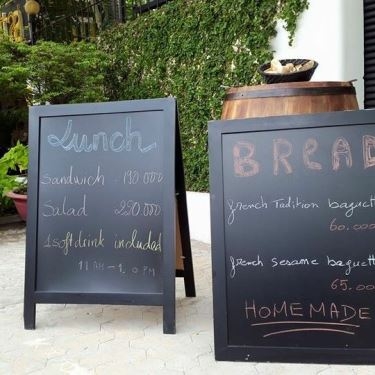 Lunch
Sandwich . 190.000
Salad 220.000
1 soft drink included
BREAD
french Tadition baguett
60.000
french sesame baguett
65.00
HOMEMADE